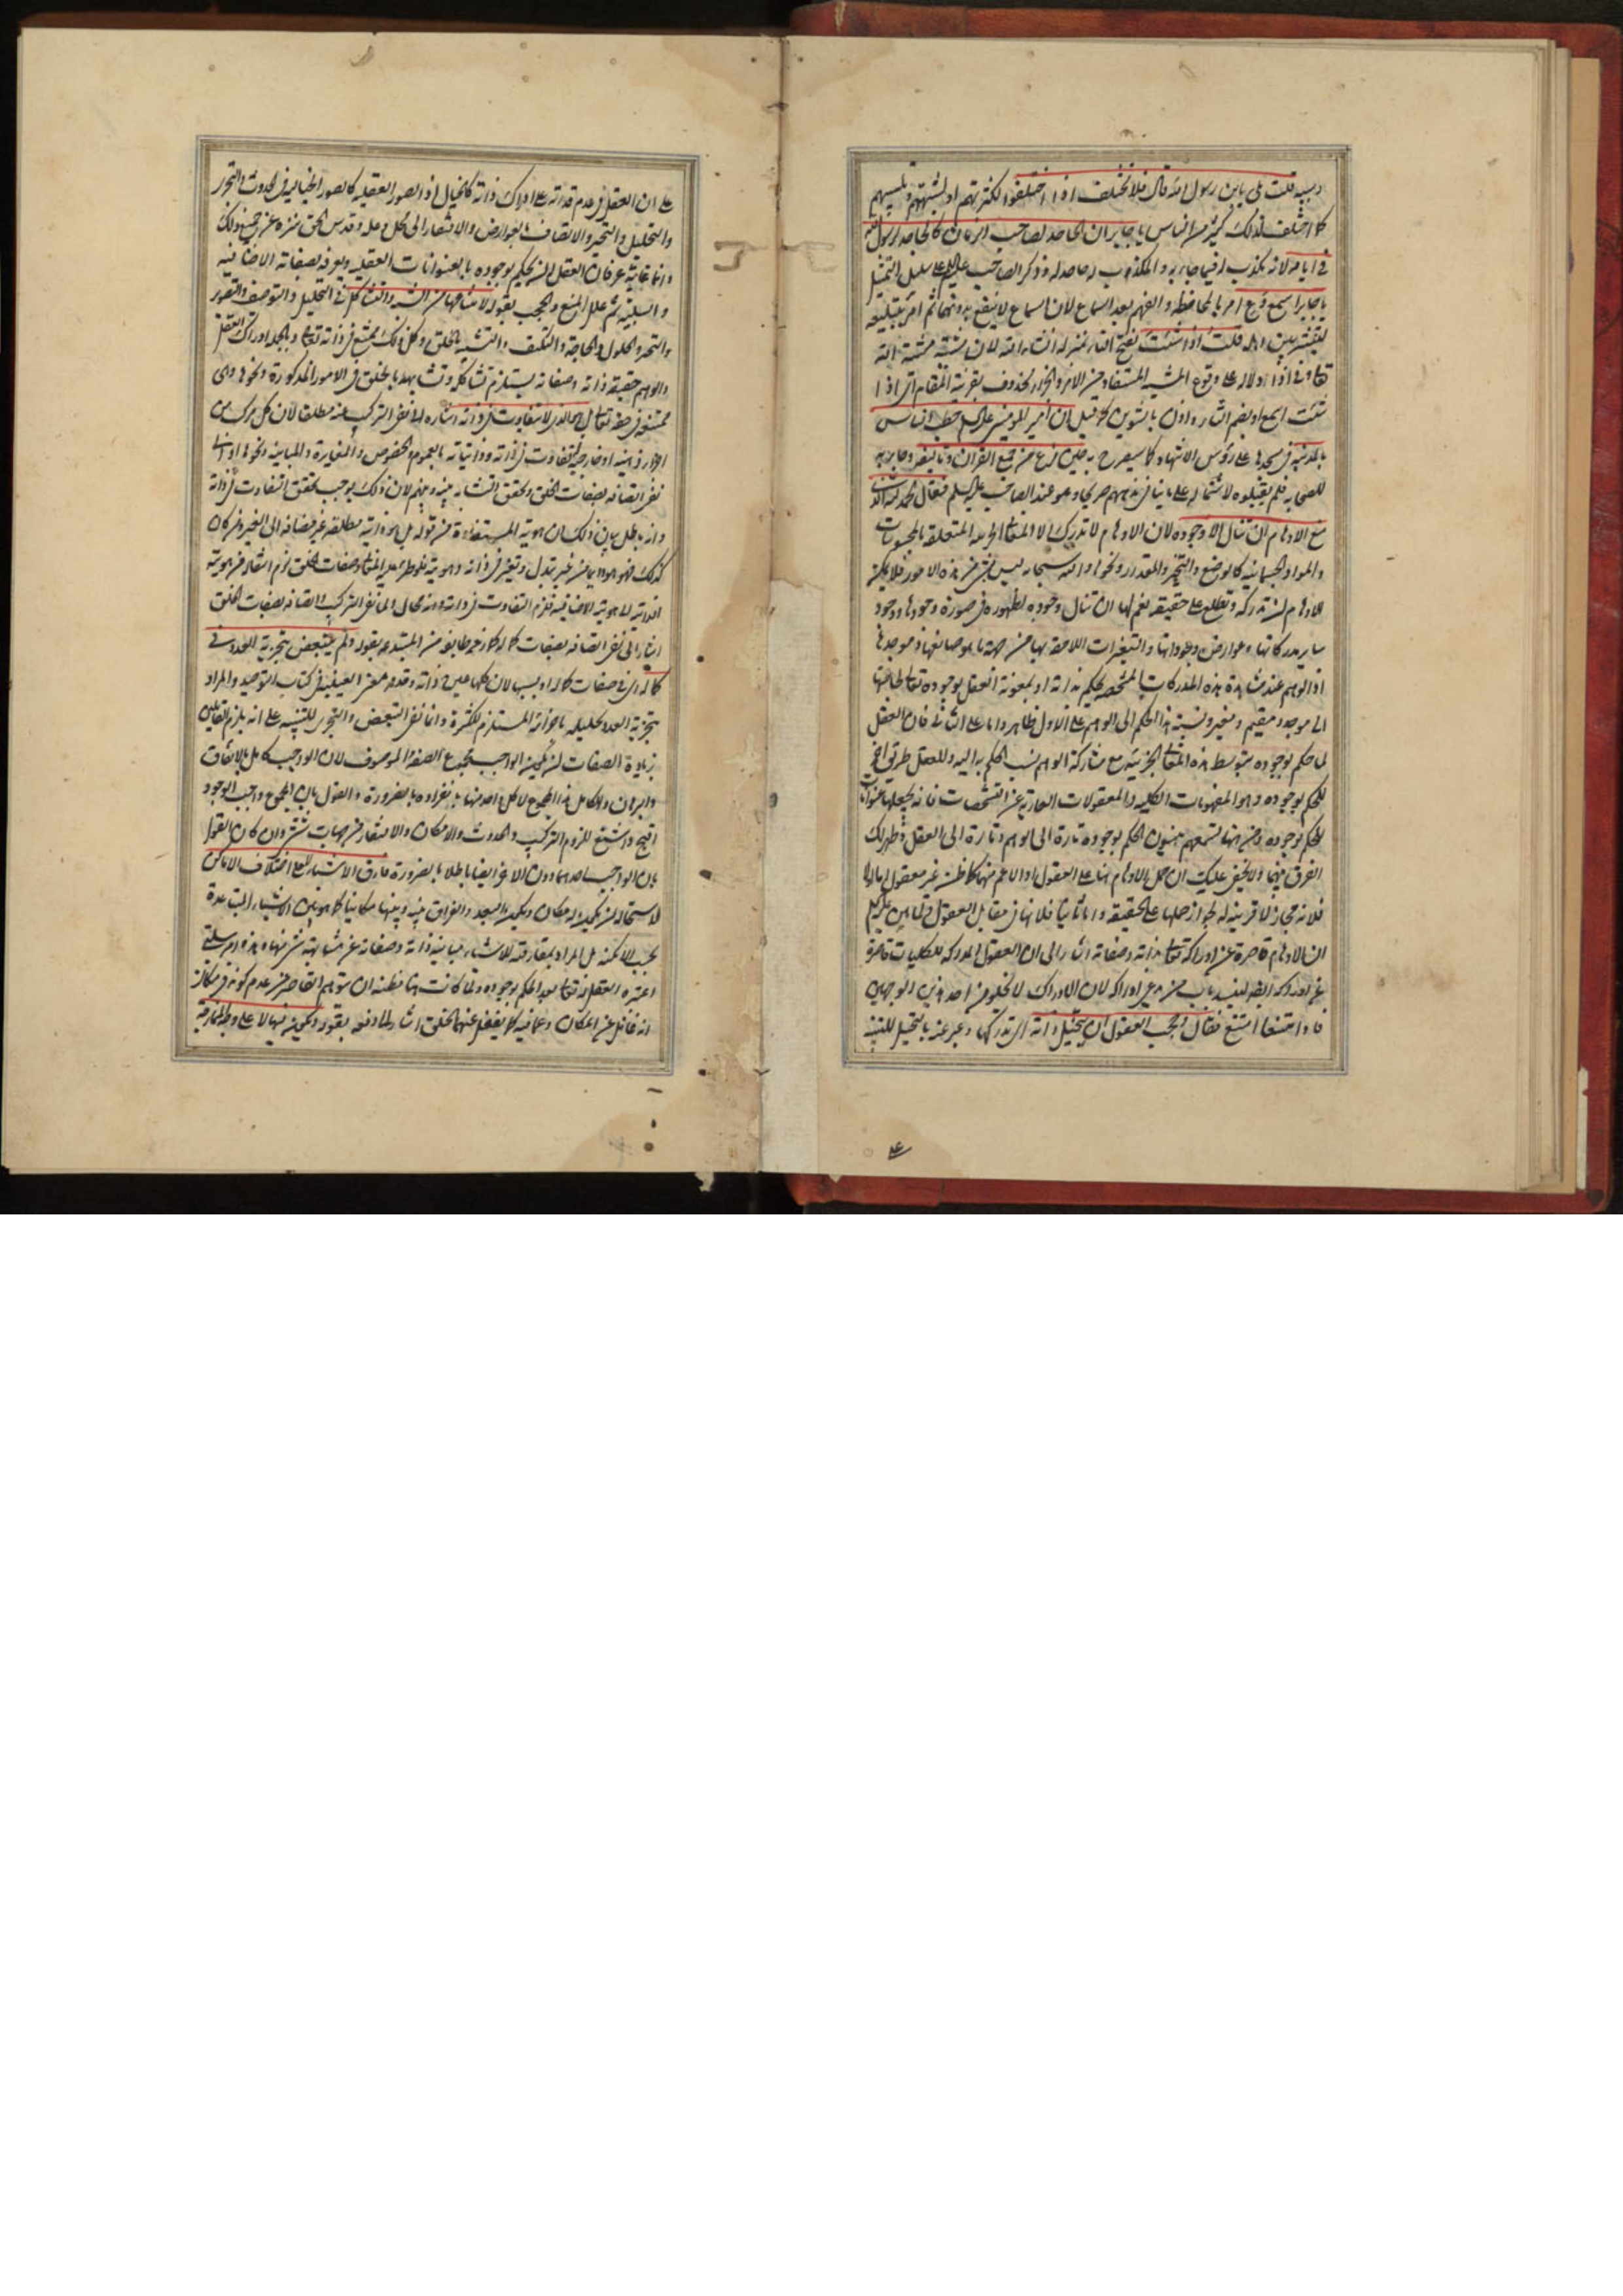 وسببه قلت بلى يابن رسول الله قال فلا تختلف اذا اختلفوا لكثرتهم او لشبهتهم وتلبيسهم
كما اختلف لذلك كثير من الناس يا جابر ان الجاحد لصاحب الزمان كالجاحد لرسول الله
في ايامه لانه يكذب فيما جاء به والمكذب له جاحد له وذكر الصاحب عليه السلم على سبيل التمثيل
يا جابر اسمع وع امر بالمحافظة والفهم بعد السماع لان السماع لا ينفع بدونهما ثم امر بتبليغه
لينتشر بين قلت اذا شئت بفتح التاء بمنزلة ان شاء الله لان مشيته مشية الله
تعالى وفي اذا دلالة على وقوع المشية المستفاد من الامر والجزاء محذوف بقرينة المقام اي اذا
شئت اسمع او بضم التاء واذن بالتنوين ان امير المؤمنين عليه السلم خطب الناس
بالمدينة في مسجدها على رؤس الاشهاد كما سيصرح به حين فرغ من جمع القرآن وتأليفه وجاء به
للصحابة فلم يقبلوه لاشتماله على ما ينافي مذهبهم صريحا وهو عند الصاحب عليه السلم فقال الحمد لله الذي
منع الاوهام ان تنال الا وجوده لان الاوهام لا تدرك الا المعاني الجزئية المتعلقة بالمحسوسات
والمواد الجسمانية كالوضع والتحيز والمقدار ونحوها والله سبحانه ليس من هذه الامور فلا يمكن
للاوهام ان تدركه وتطلع على حقيقته نعم لها ان تنال وجوده لظهوره في صورة وجودها ووجود
ساير مدركاتها وعوارض وجوداتها والتغيرات اللاحقة بها من جهة ما هو صانعها وموجدها
اذ الوهم عند مشاهدة هذه المدركات المشخصة يحكم بذاته او بمعونة العقل بوجوده تعالى لحاجتها
الى موجد ومقيم ومغير ونسبة هذا الحكم الى الوهم على الاول ظاهر واما على الثاني فلان العقل
لما حكم بوجوده بتوسط هذه المعاني الجزئية مع مشاركة الوهم نسب الحكم به اليه وللعقل طريق آخر
للحكم بوجوده وهو المفهومات الكلية والمعقولات العارية عن التشخصات فانه يجعلها عنوانا
للحكم بوجوده ومن ههنا تسمعهم ينسبون الحكم بوجوده تارة الى الوهم وتارة الى العقل وظهر لك
الفرق بينهما ولا يخفى عليك ان حمل الاوهام هنا على العقول او الاعم منهما كما ظن غير معقول اما اولا
فلانه مجاز لا قرينة له لجواز حملها على الحقيقة واما ثانيا فلانها في مقابل العقول ولما بين عليه السلم
ان الاوهام قاصرة عن ادراكه تعالى بذاته وصفاته اشار الى ان العقول المدركة للكليات قاصرة
عن ادراكه ايضا لينسد باب من ادراكه لان الادراك لا يخلو من احد هذين الوجهين
فاذا امتنعا امتنع فقال وحجب العقول ان تتخيل ذاته اي تدركها وعبر عنه بالتخيل للتنبيه
على ان العقل في عدم قدرته على ادراك ذاته كالخيال اذ الصور العقلية كالصور الخيالية في الحدوث والتحيز
والتحليل والتحيز والاتصاف بالعوارض والافتقار الى المحل وعلة وقدس الحق منزه عن جميع ذلك
وانما غاية عرفان العقل ان يحكم بوجوده بالعنوانات العقلية ويعرفه بصفاته الاضافية
والسلبية ثم علل المنع والحجب بقوله لامتناعها من الشبه والتشاكل في التحليل والتوصيف والتصور
والتحيز والحلول والحاجة والتكيف والتشبه بالخلق وكل ذلك ممتنع في ذاته تعالى وبالجملة ادراك العقل
والوهم حقيقة ذاته وصفاته يستلزم تشاكله وتشابهه بالخلق في الامور المذكورة ونحوها وهي
ممتنعة في حقه تعالى بل هو الذي لا يتفاوت في ذاته اشارة الى نفي التركيب عنه مطلقا لان كل مركب من
اجزاء ذهنية او خارجية تتفاوت في ذاته وذاتياته بالعموم والخصوص والمغايرة والمباينة ونحوها او الى
نفي اتصافه بصفات الخلق وتحقق التشابه بينه وبينهم لان ذلك يوجب تحقق التفاوت في ذاته
وانه باطل بيان ذلك ان هويته المستفادة من قوله بل هو ذاتية مطلقة غير مضافة الى الغير ومن كان
كذلك فهو هو دائما من غير تبدل وتغير في ذاته وهويته فلو طرء عليه المعاني وصفات الخلق لزم انتقاله من هويته
الذاتية الى هويته الاضافية فلزم التفاوت في ذاته وانه محال ولما نفى التركيب واتصافه بصفات الخلق
اشار الى نفي اتصافه بصفات كماله كما زعم طايفة من المبتدعة بقوله ولم يتبعض بتجزية العدد في
كماله اي في صفات كماله او بسببها لان كلها عين ذاته وقد مر معنى العينية في كتاب التوحيد والمراد
بتجزية العدد تحليله باجزائه المستلزم للكثرة وانما نفى التبعض والتجزي للتنبيه على انه يلزم القايلين
بزيادة الصفات ان يكون الواجب مجموع الصفة والموصوف لان الواجب كامل بالاتفاق
والبرهان والكامل هذا المجموع لا كل واحد منهما بانفراده بالضرورة والقول بان المجموع واجب الوجود
اقبح واشنع للزوم التركيب والحدوث والامكان والافتقار من جهات شتى وان كان القول
بان الواجب احدهما دون الآخر ايضا باطلا بالضرورة فارق الاشياء لا على اختلاف الاماكن
لاستحالة ان يكون له مكان ويكون البعد والفراق بينه وبينها مكانيا كما هو بين الاشياء المتباعدة
بحسب الامكنة بل المراد بمفارقته للاشياء مباينة ذاته وصفاته عن مشابهة شيء منها وهذه امر سلبي
اعتبره العقل له تعالى بعد الحكم بوجوده ولما كانت ههنا مظنة ان يتوهم القاصر من عدم كونه في مكان
انه غافل عن المكان وعما فيه كما يغفل عنهما الخلق اشار الى دفعه بقوله ويكون فيها لا على وجه الممازجة